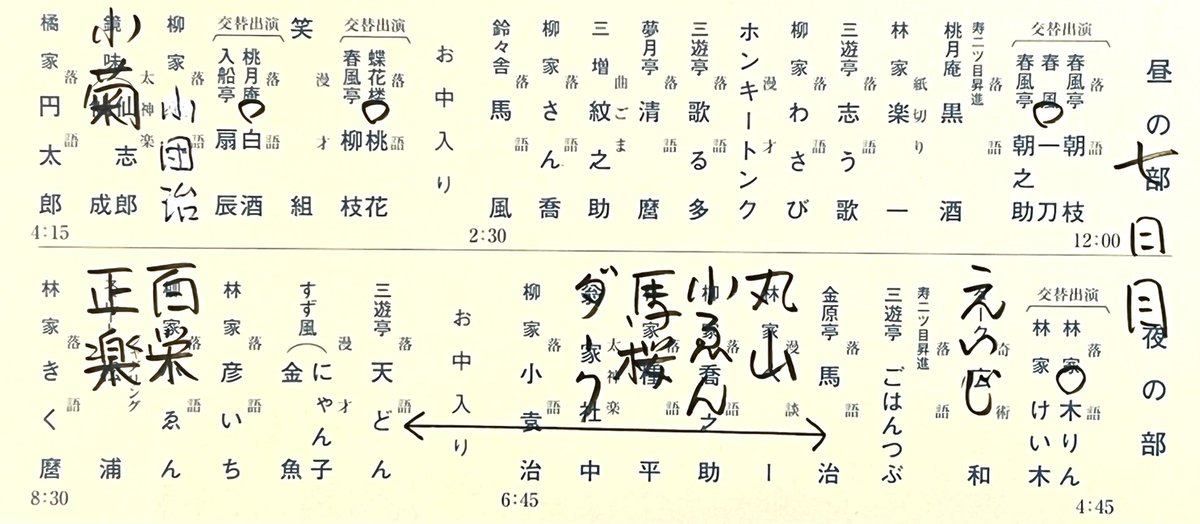 昼の部
七日目
夜の部
交替出演
落語
春風亭 朝枝
春風 一刀
春風亭 朝之助
12:00
寿二ツ目昇進
落語
桃月庵 黒酒
紙切り
林家 楽一
落語
三遊亭 志う歌
落語
柳家 わさび
漫才
ホンキートンク
落語
三遊亭 歌る多
落語
夢月亭 清麿
曲ごま
三増 紋之助
落語
柳家 さん喬
落語
鈴々舎 馬風
2:30
お中入り
交替出演
落語
蝶花楼 桃花
春風亭 柳枝
漫才
笑組
交替出演
落語
桃月庵 白酒
入船亭 扇辰
落語
柳家
小団治
太神楽
鏡味 仙志郎
仙成
小菊
落語
橘家 円太郎
4:15
交替出演
落語
林家 木りん
林家 けい木
4:45
奇術
和
えいじ
寿二ツ目昇進
落語
三遊亭 ごはんつぶ
落語
金原亭 馬治
漫談
林家 ー
丸山
落語
柳家 喬之助
小ゑん
落語
平
馬桜
太神楽
翁家社中
ダーク
落語
柳家 小袁治
6:45
お中入り
落語
三遊亭 天どん
漫才
すず風
にゃん子
金魚
落語
林家 彦いち
落語
柳家 小ゑん
百栄
浦
正楽
落語
林家 きく麿
8:30